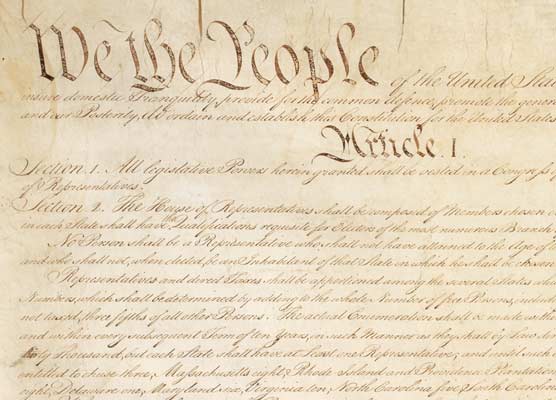 We the People of the United Sta
insure domestic Tranquility, provide for the common defence, promote the gener
and our Posterity, do ordain and establish this Constitution for the United States
Article. I.
Section. 1. All legislative Powers herein granted shall be vested in a Congress
of Representatives.
Section. 2. The House of Representatives shall be composed of Members chosen
in each State shall have the Qualifications requisite for Electors of the most numerous Branch
No Person shall be a Representative who shall not have attained to the Age of
and who shall not, when elected, be an Inhabitant of that State in which he shall be chosen
Representatives and direct Taxes shall be apportioned among the several States
Numbers, which shall be determined by adding to the whole Number of free Persons, includ
not taxed, three fifths of all other Persons. The actual Enumeration shall be made
and within every subsequent Term of ten Years, in such Manner as they shall by Law
thirty Thousand, but each State shall have at Least one Representative; and until such
entitled to chuse three, Massachusetts eight, Rhode Island and Providence Plantation
eight, Delaware one, Maryland six, Virginia ten, North Carolina five, South Carolina